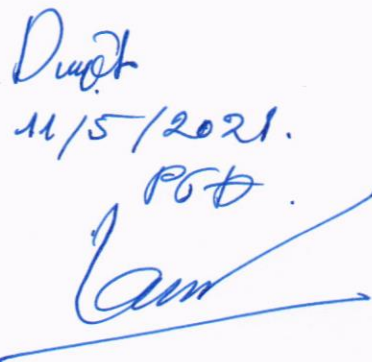 Duyệt
11/5/2021.
PGĐ.